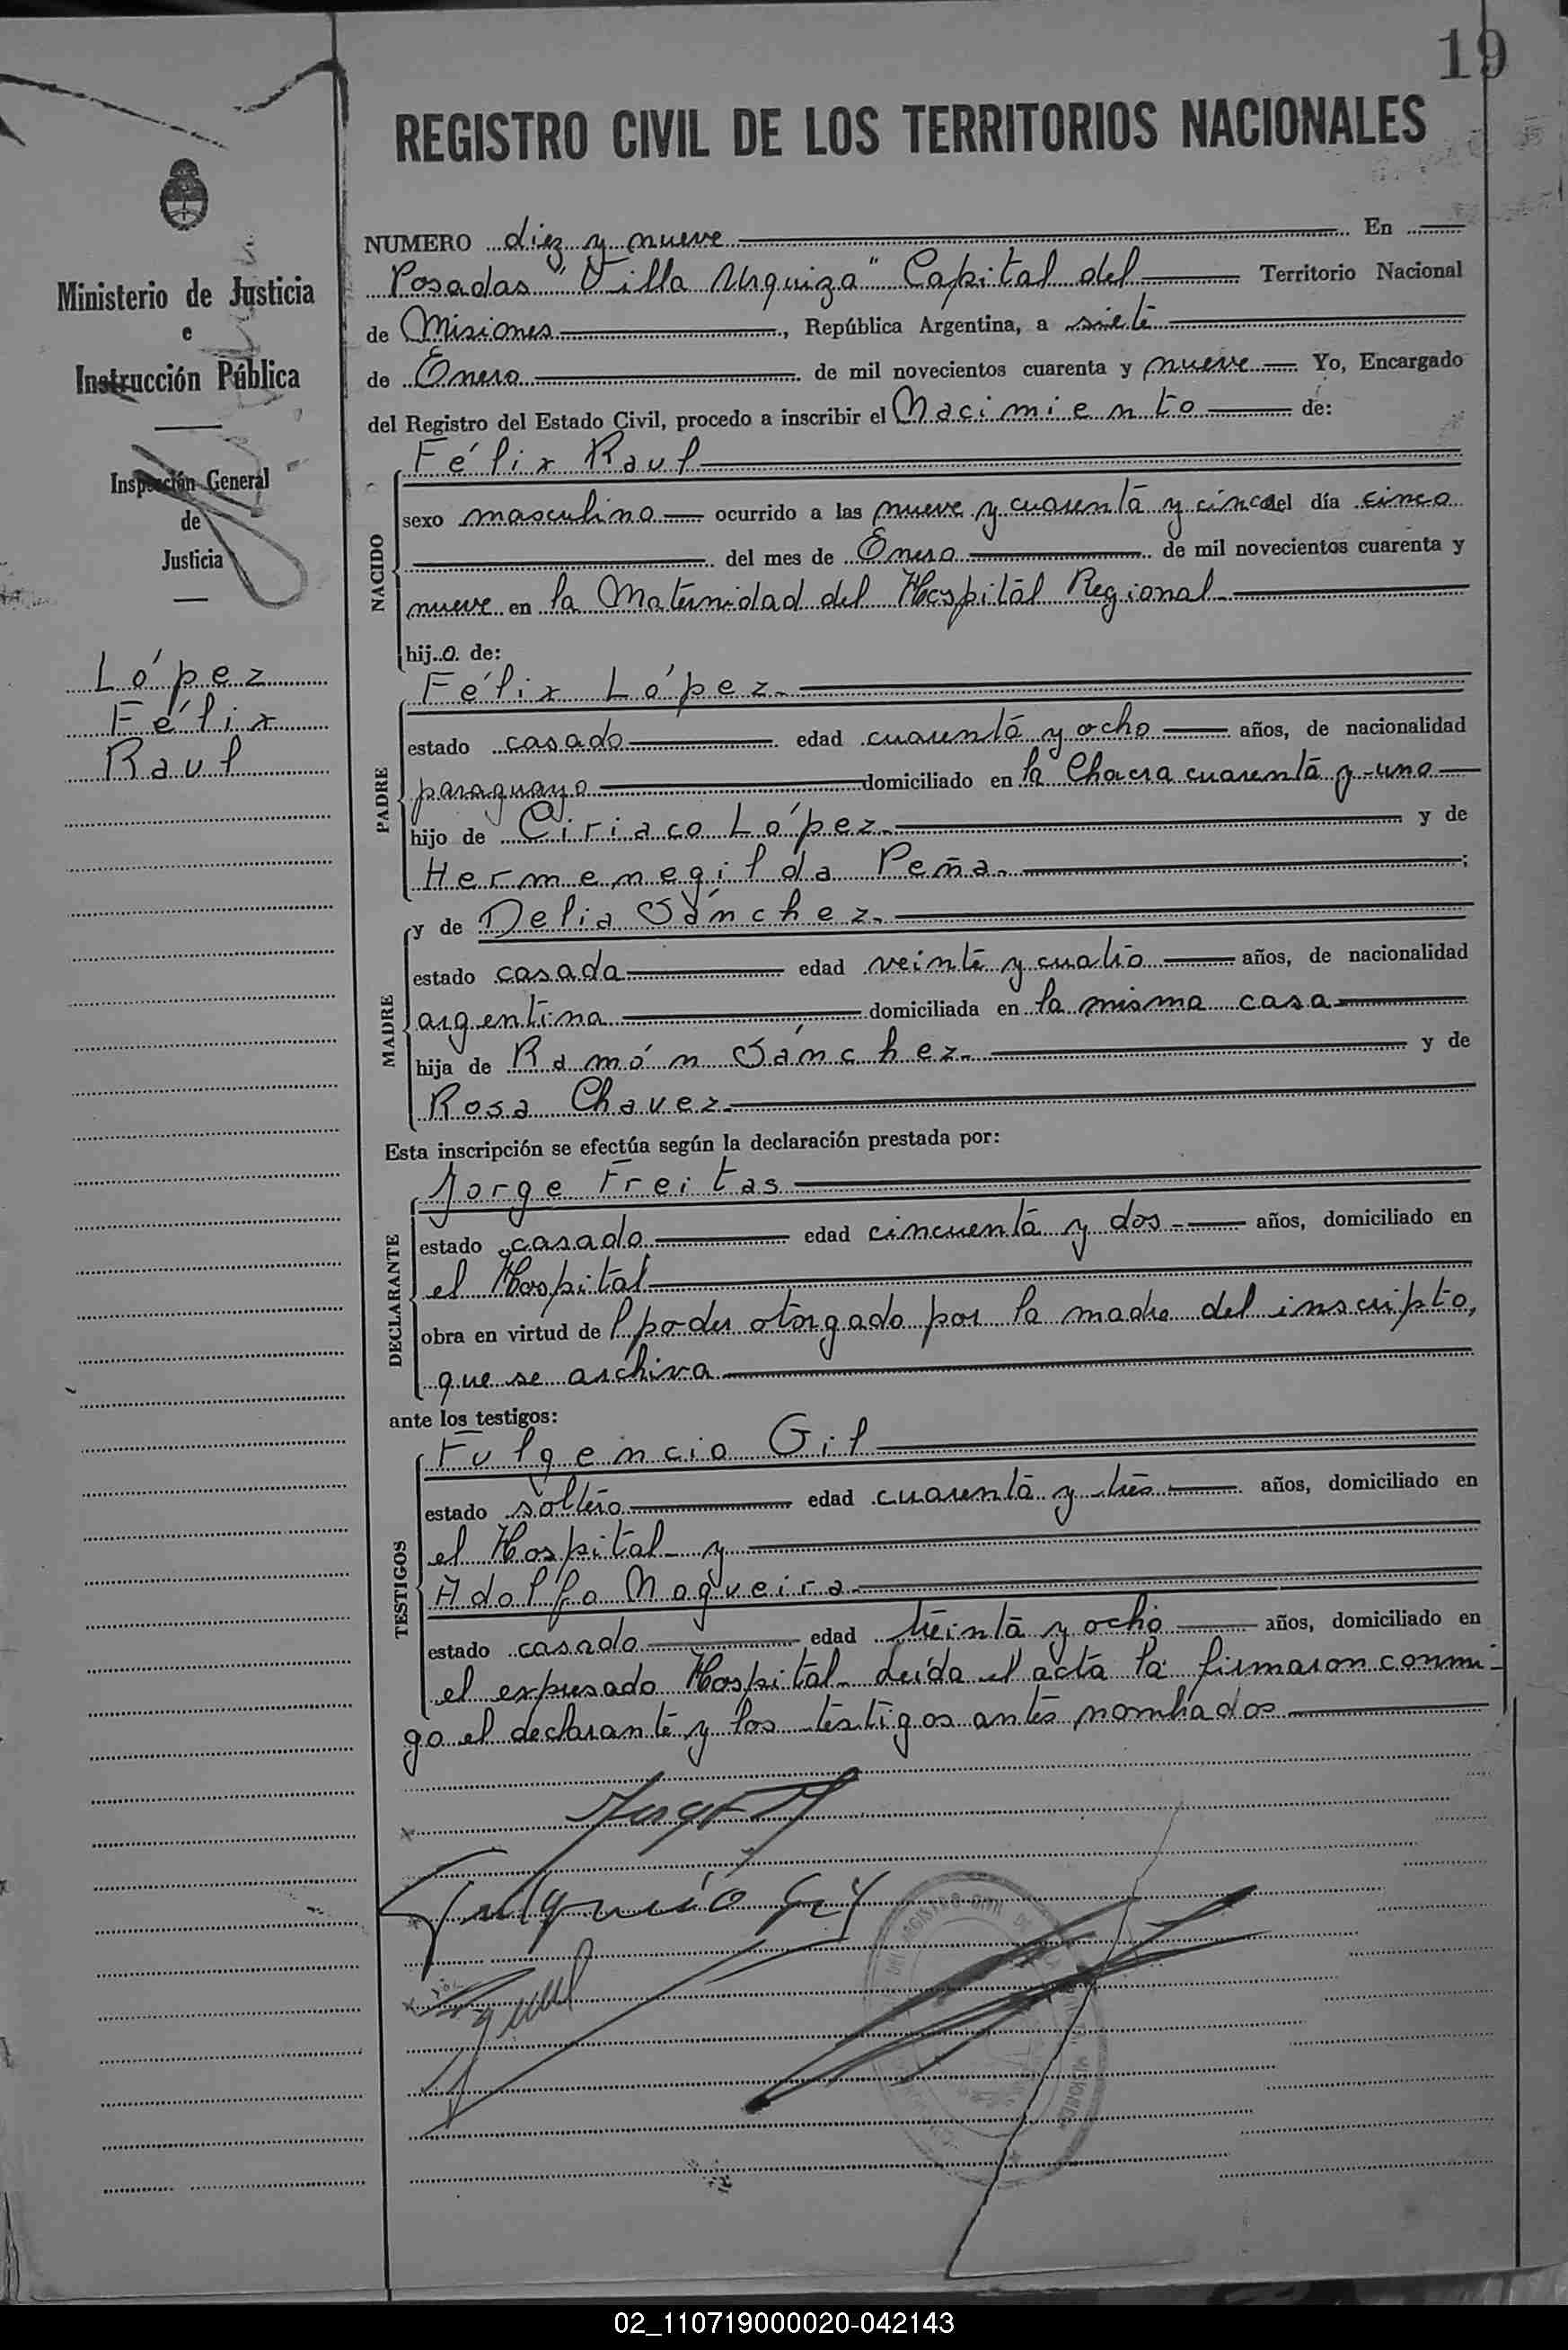 19
REGISTRO CIVIL DE LOS TERRITORIOS NACIONALES
Ministerio de Justicia
e
Instrucción Pública
Inspección General
de
Justicia
López
Félix
Raul
NUMERO diez y nueve En
Posadas "Villa Urquiza" Capital del Territorio Nacional
de Misiones, República Argentina, a siete
de Enero de mil novecientos cuarenta y nueve Yo, Encargado
del Registro del Estado Civil, procedo a inscribir el Nacimiento de:
NACIDO
Félix Raul
sexo masculino ocurrido a las nueve y cuarenta y cinco del día cinco
del mes de Enero de mil novecientos cuarenta y
nueve en la Maternidad del Hospital Regional
hijo de:
PADRE
Félix López
estado casado edad cuarenta y ocho años, de nacionalidad
paraguayo domiciliado en la Chacra cuarenta y uno
hijo de Ciriaco López y de
Hermenegilda Peña ;
MADRE
y de Delia Sánchez
estado casada edad veinte y cuatro años, de nacionalidad
argentina domiciliada en la misma casa
hija de Ramón Sánchez y de
Rosa Chavez
Esta inscripción se efectúa según la declaración prestada por:
DECLARANTE
Jorge Freitas
estado casado edad cincuenta y dos años, domiciliado en
el Hospital
obra en virtud del poder otorgado por la madre del inscripto,
que se archiva
ante los testigos:
TESTIGOS
Fulgencio Gil
estado soltero edad cuarenta y tres años, domiciliado en
el Hospital y
Adolfo Nogueira
estado casado edad treinta y ocho años, domiciliado en
el expresado Hospital. Leída el acta la firmaron conmi-
go el declarante y los testigos antes nombrados
Fulgencio Gil
02_110719000020-042143